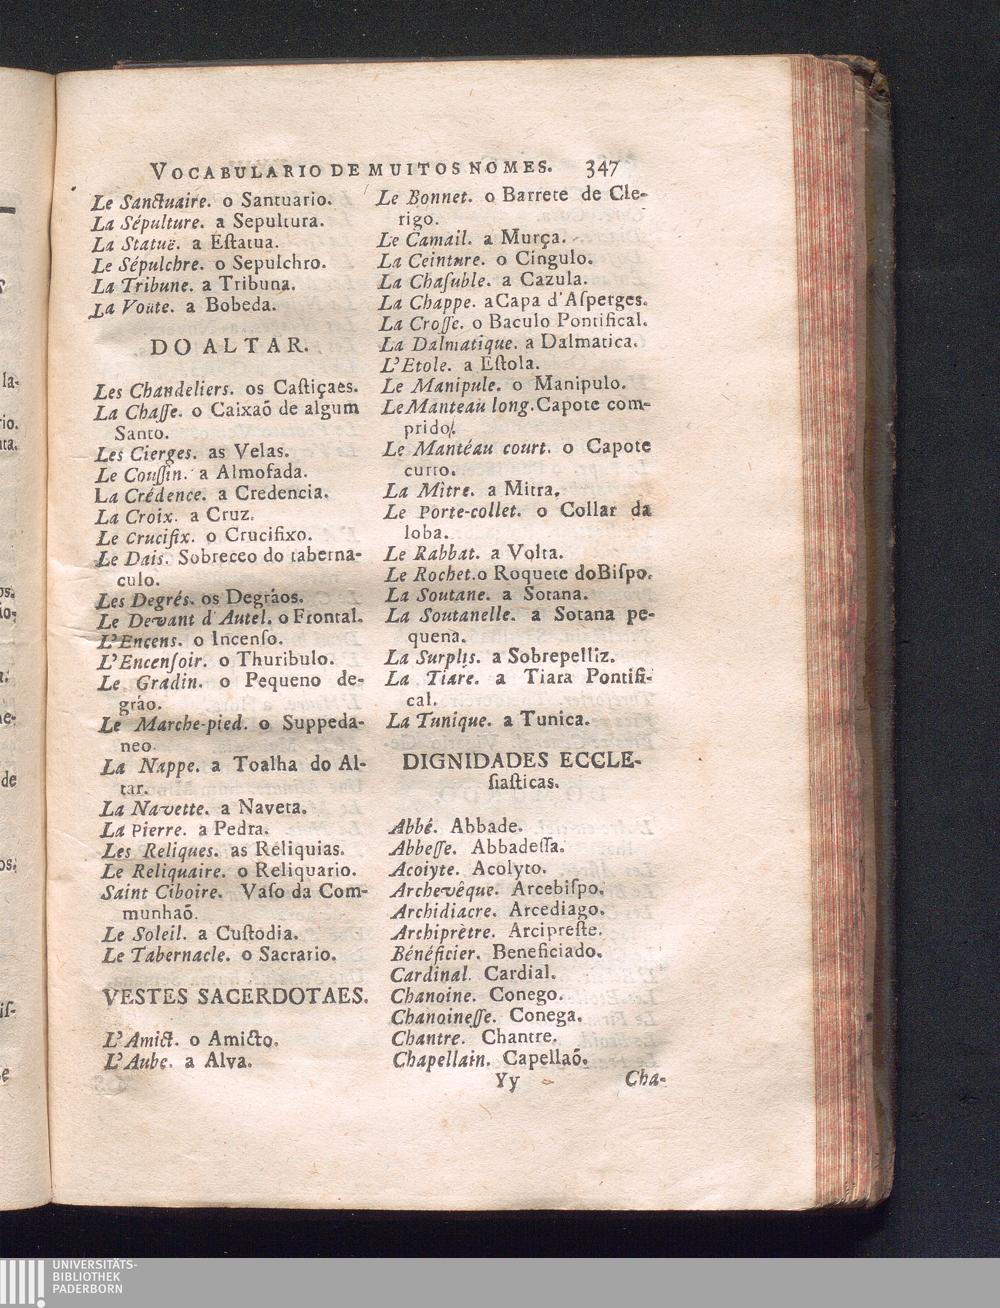 VOCABULARIO DE MUITOS NOMES. 347
Le Sanctuaire. o Santuario.
La Sépulture. a Sepultura.
La Statuë. a Eſtatua.
Le Sépulchre. o Sepulchro.
La Tribune. a Tribuna.
La Voute. a Bobeda.
DO ALTAR.
Les Chandeliers. os Caſtiçaes.
La Chaſſe. o Caixaõ de algum
Santo.
Les Cierges. as Velas.
Le Couſſin. a Almofada.
La Crédence. a Credencia.
La Croix. a Cruz.
Le Crucifix. o Crucifixo.
Le Dais. Sobreceo do taberna-
culo.
Les Degrés. os Degráos.
Le Devant d'Autel. o Frontal.
L'Encens. o Incenſo.
L'Encenſoir. o Thuribulo.
Le Gradin. o Pequeno de-
gráo.
Le Marche-pied. o Suppeda-
neo.
La Nappe. a Toalha do Al-
tar.
La Navette. a Naveta.
La Pierre. a Pedra.
Les Reliques. as Reliquias.
Le Reliquaire. o Reliquario.
Saint Ciboire. Vaſo da Com-
munhaõ.
Le Soleil. a Cuſtodia.
Le Tabernacle. o Sacrario.
VESTES SACERDOTAES.
L'Amict. o Amicto.
L'Aube. a Alva.
Le Bonnet. o Barrete de Cle-
rigo.
Le Camail. a Murça.
La Ceinture. o Cingulo.
La Chaſuble. a Cazula.
La Chappe. a Capa d'Aſperges.
La Croſſe. o Baculo Pontifical.
La Dalmatique. a Dalmatica.
L'Etole. a Eſtola.
Le Manipule. o Manipulo.
Le Manteau long. Capote com-
prido.
Le Mantéau court. o Capote
curto.
La Mitre. a Mitra.
Le Porte-collet. o Collar da
loba.
Le Rabbat. a Volta.
Le Rochet. o Roquete do Biſpo.
La Soutane. a Sotana.
La Soutanelle. a Sotana pe-
quena.
La Surplis. a Sobrepelliz.
La Tiare. a Tiara Pontifi-
cal.
La Tunique. a Tunica.
DIGNIDADES ECCLE-
ſiaſticas.
Abbé. Abbade.
Abbeſſe. Abbadeſſa.
Acoiyte. Acolyto.
Archevêque. Arcebiſpo.
Archidiacre. Arcediago.
Archiprètre. Arcipreſte.
Bénéficier. Beneficiado.
Cardinal. Cardial.
Chanoine. Conego.
Chanoineſſe. Conega.
Chantre. Chantre.
Chapellain. Capellaõ.
Yy Cha-
UNIVERSITÄTS-
BIBLIOTHEK
PADERBORN